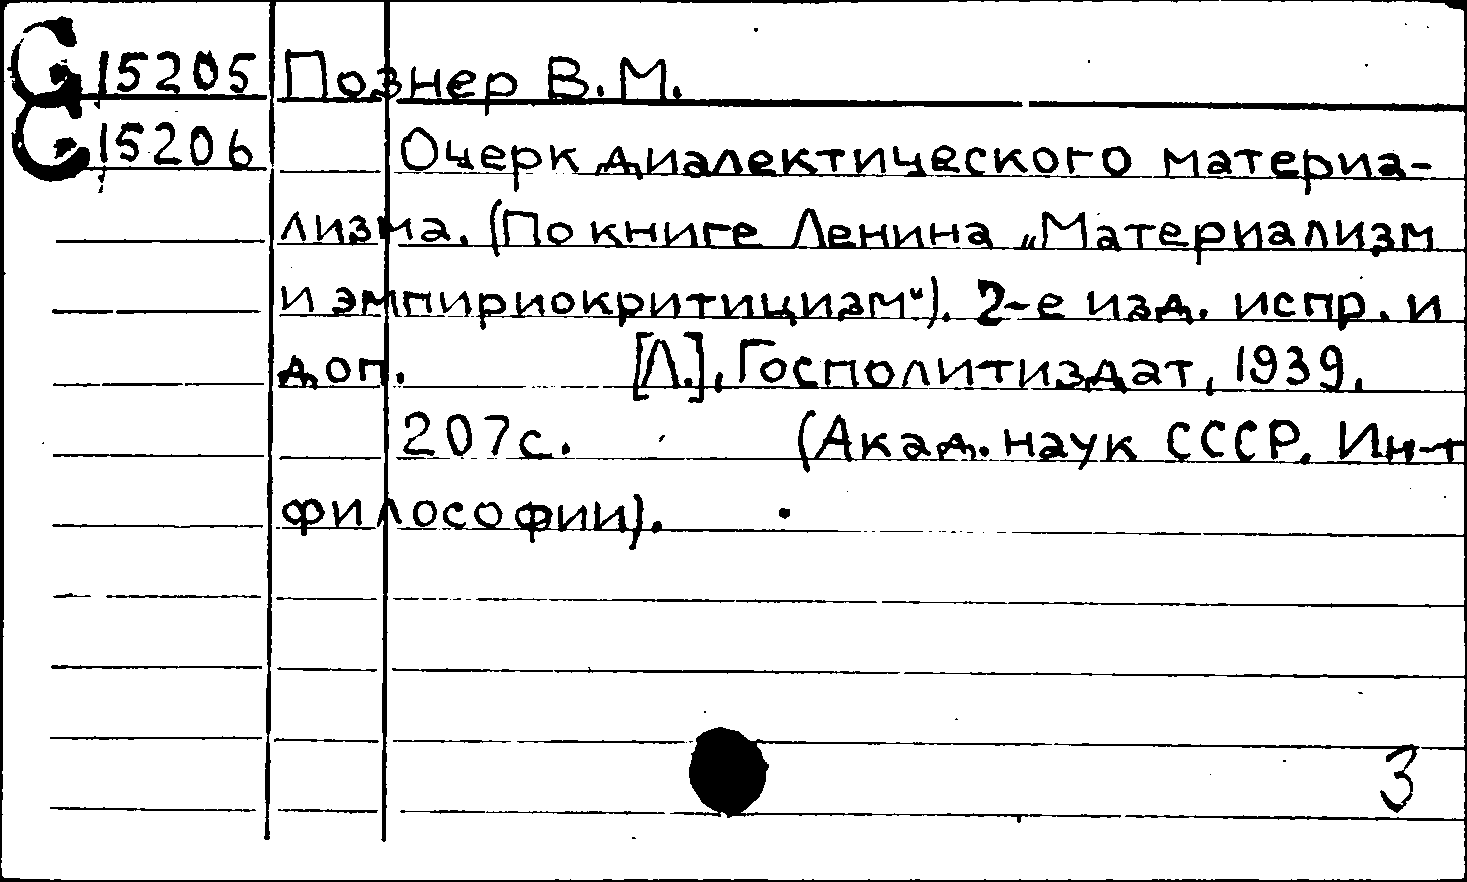 С 15205 Познер В.М.
С 15206 Очерк диалектического материа-
лизма. (По книге Ленина „Материализм
и эмпириокритицизм"). 2-е изд. испр. и
доп. [Л.], Госполитиздат, 1939.
207с. (Акад. наук СССР. Ин-т
философии).
3